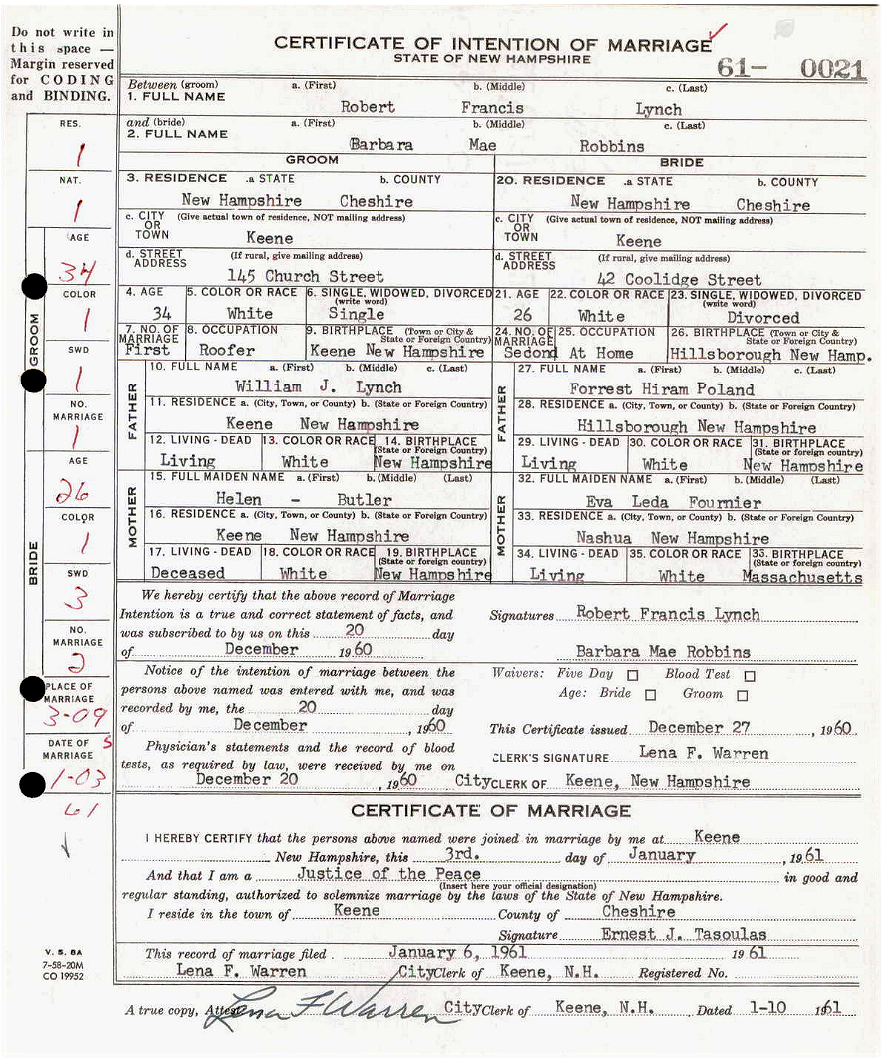 Do not write in
this space —
Margin reserved
for CODING
and BINDING.
CERTIFICATE OF INTENTION OF MARRIAGE
STATE OF NEW HAMPSHIRE
61- 0021
Between (groom) a. (First) b. (Middle) c. (Last)
1. FULL NAME Robert Francis Lynch
and (bride) a. (First) b. (Middle) c. (Last)
2. FULL NAME Barbara Mae Robbins
GROOM BRIDE
3. RESIDENCE .a STATE b. COUNTY 20. RESIDENCE .a STATE b. COUNTY
New Hampshire Cheshire New Hampshire Cheshire
c. CITY (Give actual town of residence, NOT mailing address) c. CITY (Give actual town of residence, NOT mailing address)
OR OR
TOWN Keene TOWN Keene
d. STREET (If rural, give mailing address) d. STREET (If rural, give mailing address)
ADDRESS 145 Church Street ADDRESS 42 Coolidge Street
4. AGE 5. COLOR OR RACE 6. SINGLE, WIDOWED, DIVORCED 21. AGE 22. COLOR OR RACE 23. SINGLE, WIDOWED, DIVORCED
(write word) (write word)
34 White Single 26 White Divorced
7. NO. OF MARRIAGE 8. OCCUPATION 9. BIRTHPLACE (Town or City & State or Foreign Country) 24. NO. OF MARRIAGE 25. OCCUPATION 26. BIRTHPLACE (Town or City & State or Foreign Country)
First Roofer Keene New Hampshire Sedond At Home Hillsborough New Hamp.
FATHER
10. FULL NAME a. (First) b. (Middle) c. (Last) 27. FULL NAME a. (First) b. (Middle) c. (Last)
William J. Lynch Forrest Hiram Poland
11. RESIDENCE a. (City, Town, or County) b. (State or Foreign Country) 28. RESIDENCE a. (City, Town, or County) b. (State or Foreign Country)
Keene New Hampshire Hillsborough New Hampshire
12. LIVING - DEAD 13. COLOR OR RACE 14. BIRTHPLACE (State or Foreign Country) 29. LIVING - DEAD 30. COLOR OR RACE 31. BIRTHPLACE (State or foreign country)
Living White New Hampshire Living White New Hampshire
FATHER
MOTHER
15. FULL MAIDEN NAME a. (First) b. (Middle) (Last) 32. FULL MAIDEN NAME a. (First) b. (Middle) (Last)
Helen - Butler Eva Leda Fournier
16. RESIDENCE a. (City, Town, or County) b. (State or Foreign Country) 33. RESIDENCE a. (City, Town, or County) b. (State or Foreign Country)
Keene New Hampshire Nashua New Hampshire
17. LIVING - DEAD 18. COLOR OR RACE 19. BIRTHPLACE (State or foreign country) 34. LIVING - DEAD 35. COLOR OR RACE 33. BIRTHPLACE (State or foreign country)
Deceased White New Hampshire Living White Massachusetts
MOTHER
We hereby certify that the above record of Marriage
Intention is a true and correct statement of facts, and
was subscribed to by us on this 20 day
of December 1960
Signatures Robert Francis Lynch
Barbara Mae Robbins
Notice of the intention of marriage between the
persons above named was entered with me, and was
recorded by me, the 20 day
of December , 1960
Waivers: Five Day Blood Test
Age: Bride Groom
This Certificate issued December 27 , 1960
Physician's statements and the record of blood
tests, as required by law, were received by me on
December 20 , 1960
CLERK'S SIGNATURE Lena F. Warren
City CLERK OF Keene, New Hampshire
CERTIFICATE OF MARRIAGE
I HEREBY CERTIFY that the persons above named were joined in marriage by me at Keene
New Hampshire, this 3rd. day of January , 1961
And that I am a Justice of the Peace in good and
(Insert here your official designation)
regular standing, authorized to solemnize marriage by the laws of the State of New Hampshire.
I reside in the town of Keene County of Cheshire
Signature Ernest J. Tasoulas
This record of marriage filed January 6, 1961 1961
Lena F. Warren City Clerk of Keene, N.H. Registered No.
A true copy, Attest Lena F Warren City Clerk of Keene, N.H. Dated 1-10 1961
RES.
1
NAT.
1
GROOM
AGE
34
COLOR
1
SWD
1
NO.
MARRIAGE
1
BRIDE
AGE
26
COLOR
1
SWD
3
NO.
MARRIAGE
2
PLACE OF
MARRIAGE
3-09
DATE OF S
MARRIAGE
1-03
61
V. S. 8A
7-58-20M
CO 19952